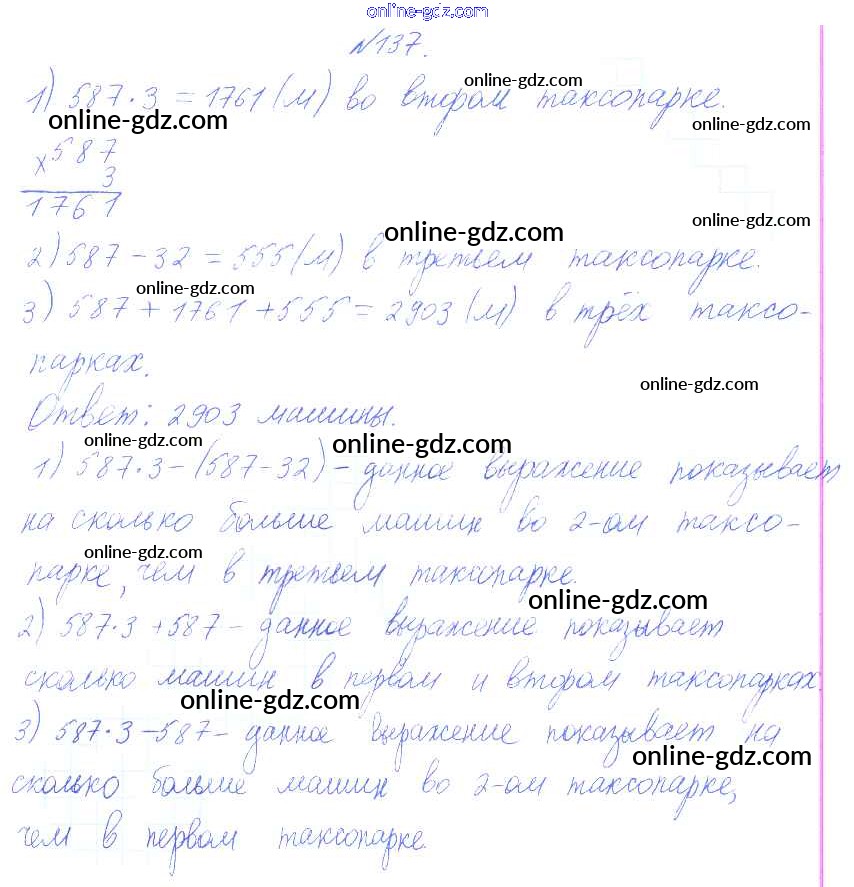 online-gdz.com
№137.
online-gdz.com
1) 587·3=1761(м) во втором таксопарке.
online-gdz.com online-gdz.com
× 587
3
1761
online-gdz.com online-gdz.com
2) 587-32=555(м) в третьем таксопарке.
online-gdz.com
3) 587+1761+555=2903(м) в трёх таксо-
парках.
online-gdz.com
Ответ: 2903 машины.
online-gdz.com online-gdz.com
1) 587·3-(587-32)-данное выражение показывает
на сколько больше машин во 2-ом таксо-
online-gdz.com
парке, чем в третьем таксопарке.
online-gdz.com
2) 587·3+587- данное выражение показывает
сколько машин в первом и втором таксопарках.
online-gdz.com
3) 587·3-587- данное выражение показывает на
online-gdz.com
сколько больше машин во 2-ом таксопарке,
чем в первом таксопарке.